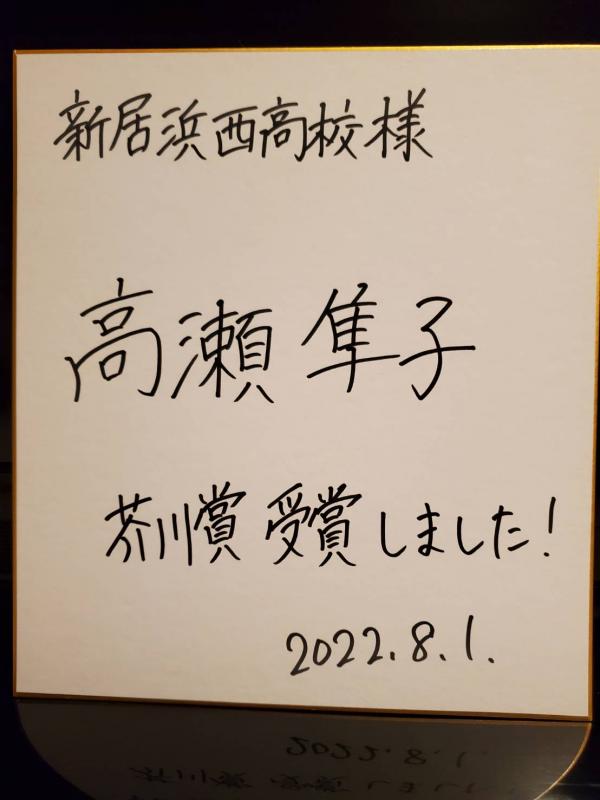 新居浜西高校様
高瀬隼子
芥川賞 受賞しました!
2022.8.1.